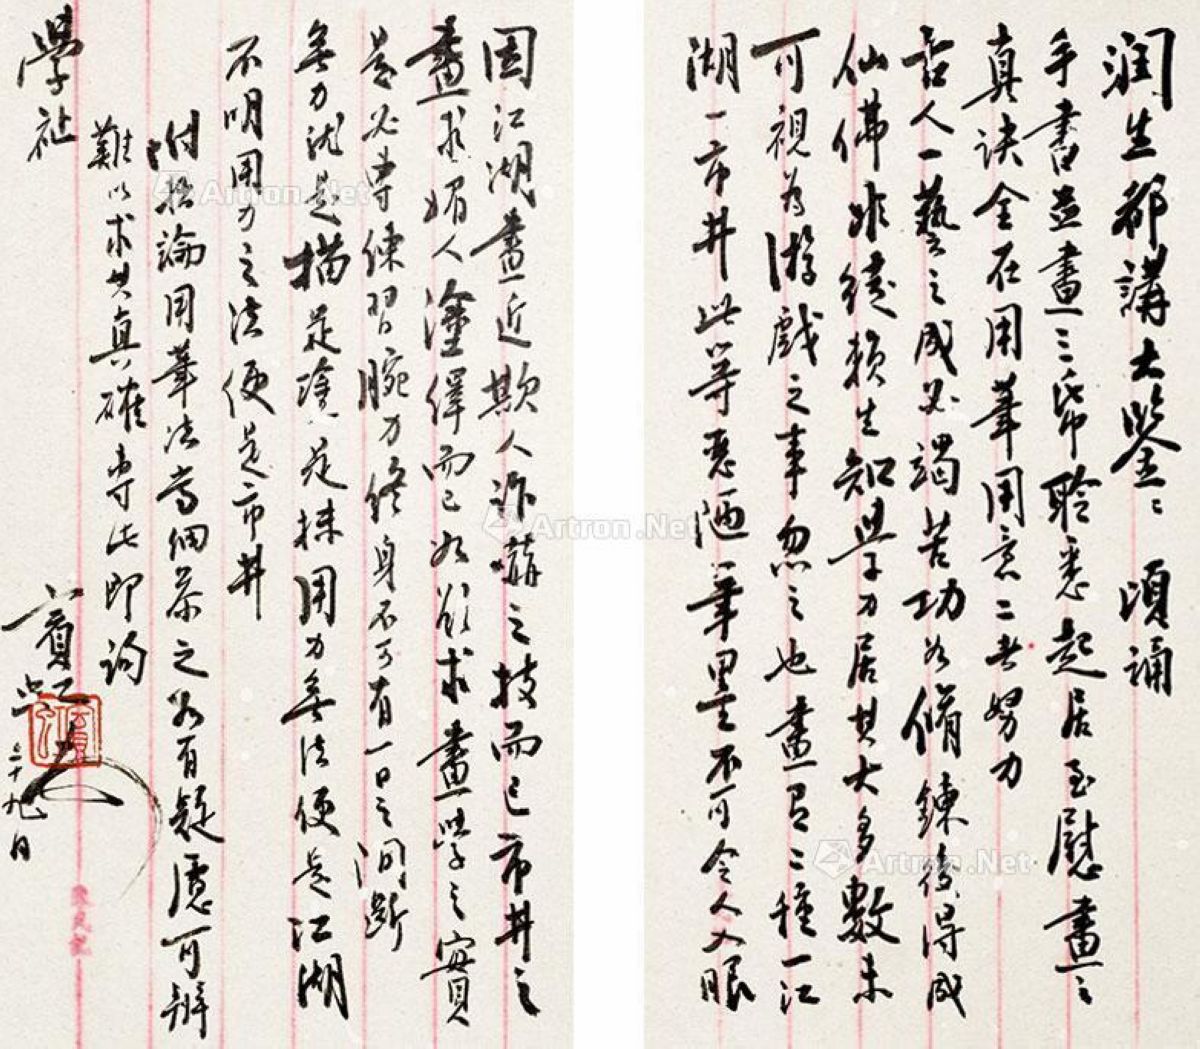 润生都講大鉴 頃誦
手書並畫三帋聆悉起居至慰畫之
真訣全在用筆用意二者努力
古人一藝之成必竭苦功如脩鍊後得成
仙佛非徒賴生知學力居其大多數未
可視為游戲之事忽之也畫有二種一江
湖一市井此等惡陋筆墨不可令人入眼
因江湖畫近欺人詐嚇之技而已市井之
畫求媚人塗澤而已如欲求畫學之實
是必專練習腕力終身不可有一日之間斷
無力就是描是塗是抹用力無法便是江湖
不明用力之法便是市井
附拙論用筆法高細荼之如有疑慮可辨
難以求其真確專此即詢
學祉
賓虹
三十九日
Artron.Net
Artron.Net
Artron.Net
Artron.Net